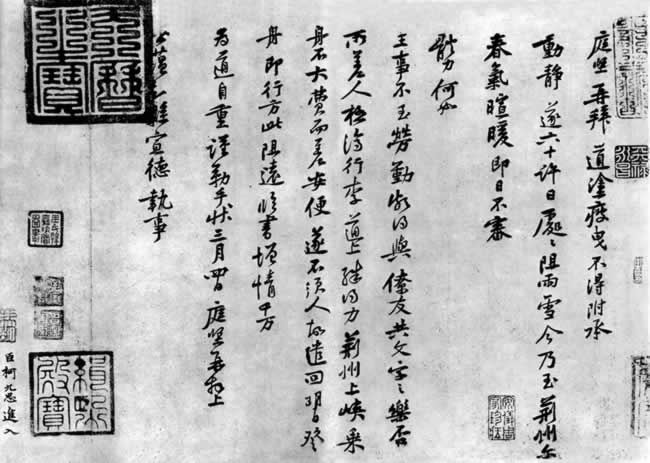 庭堅再拜道塗疲曳不得附承
動靜遂六十許日處々阻雨雪今乃至荊州爾
春氣暄暖即日不審
體力何如
王事不至勞勤頗得與僚友共文字之樂否
所差人極濟行李道上殊得力荊州上峽乘
舟不大費而差安便遂不須人故遣回明日發
舟即行方此阻遠臨書增情千萬
為道自重謹勒手狀三月四日庭堅再拜上
公蘊知縣宣德執事
天曆之寶
緝熙殿寶
臣柯九思進入